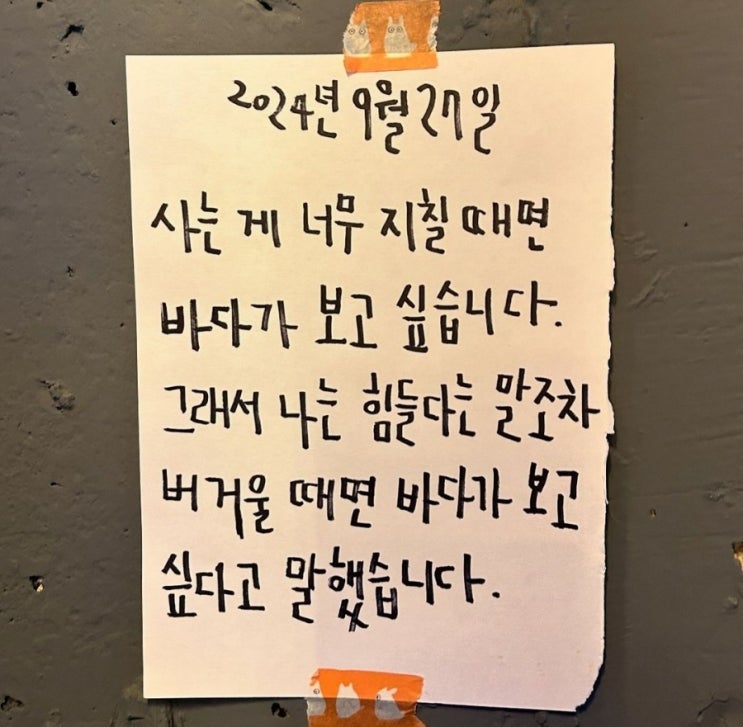 2024년 9월 27일
사는 게 너무 지칠 때면
바다가 보고 싶습니다.
그래서 나는 힘들다는 말조차
버거울 때면 바다가 보고
싶다고 말했습니다.